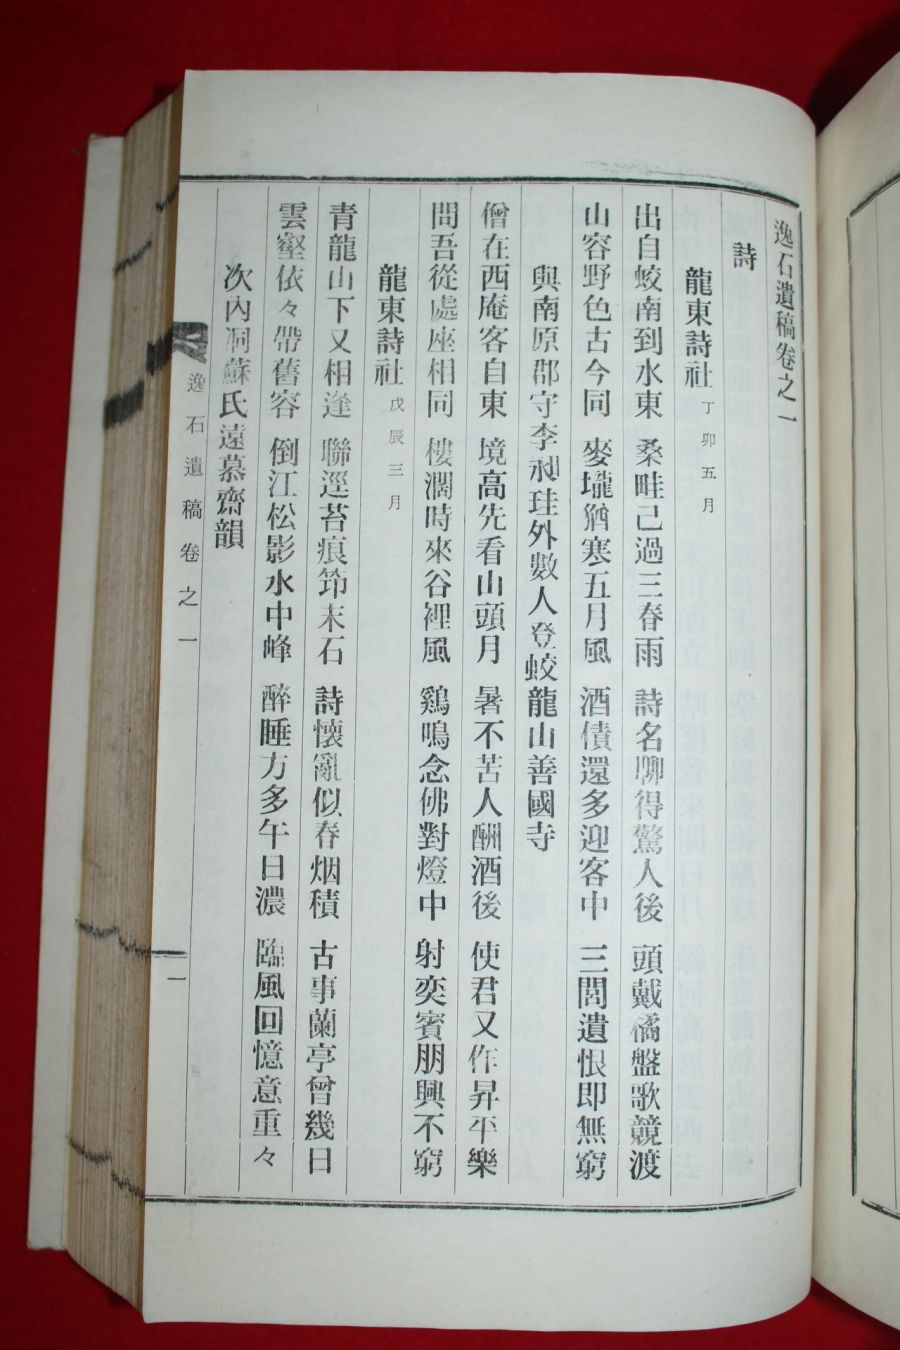 逸石遺稿卷之一
詩
龍東詩社 丁卯五月
出自蛟南到水東 桑畦已過三春雨 詩名聊得驚人後 頭戴橘盤歌競渡
山容野色古今同 麥壠猶寒五月風 酒債還多迎客中 三閭遺恨即無窮
與南原郡守李昶珪外數人登蛟龍山善國寺
僧在西庵客自東 境高先看山頭月 暑不苦人酬酒後 使君又作昇平樂
問吾從處座相同 樓濶時來谷裡風 鷄鳴念佛對燈中 射奕賓朋興不窮
龍東詩社 戊辰三月
青龍山下又相逢 聯逕苔痕筇末石 詩懷亂似春烟積 古事蘭亭曾幾日
雲壑依々帶舊容 倒江松影水中峰 醉睡方多午日濃 臨風回憶意重々
次內洞蘇氏遠慕齋韻
逸石遺稿卷之一
一